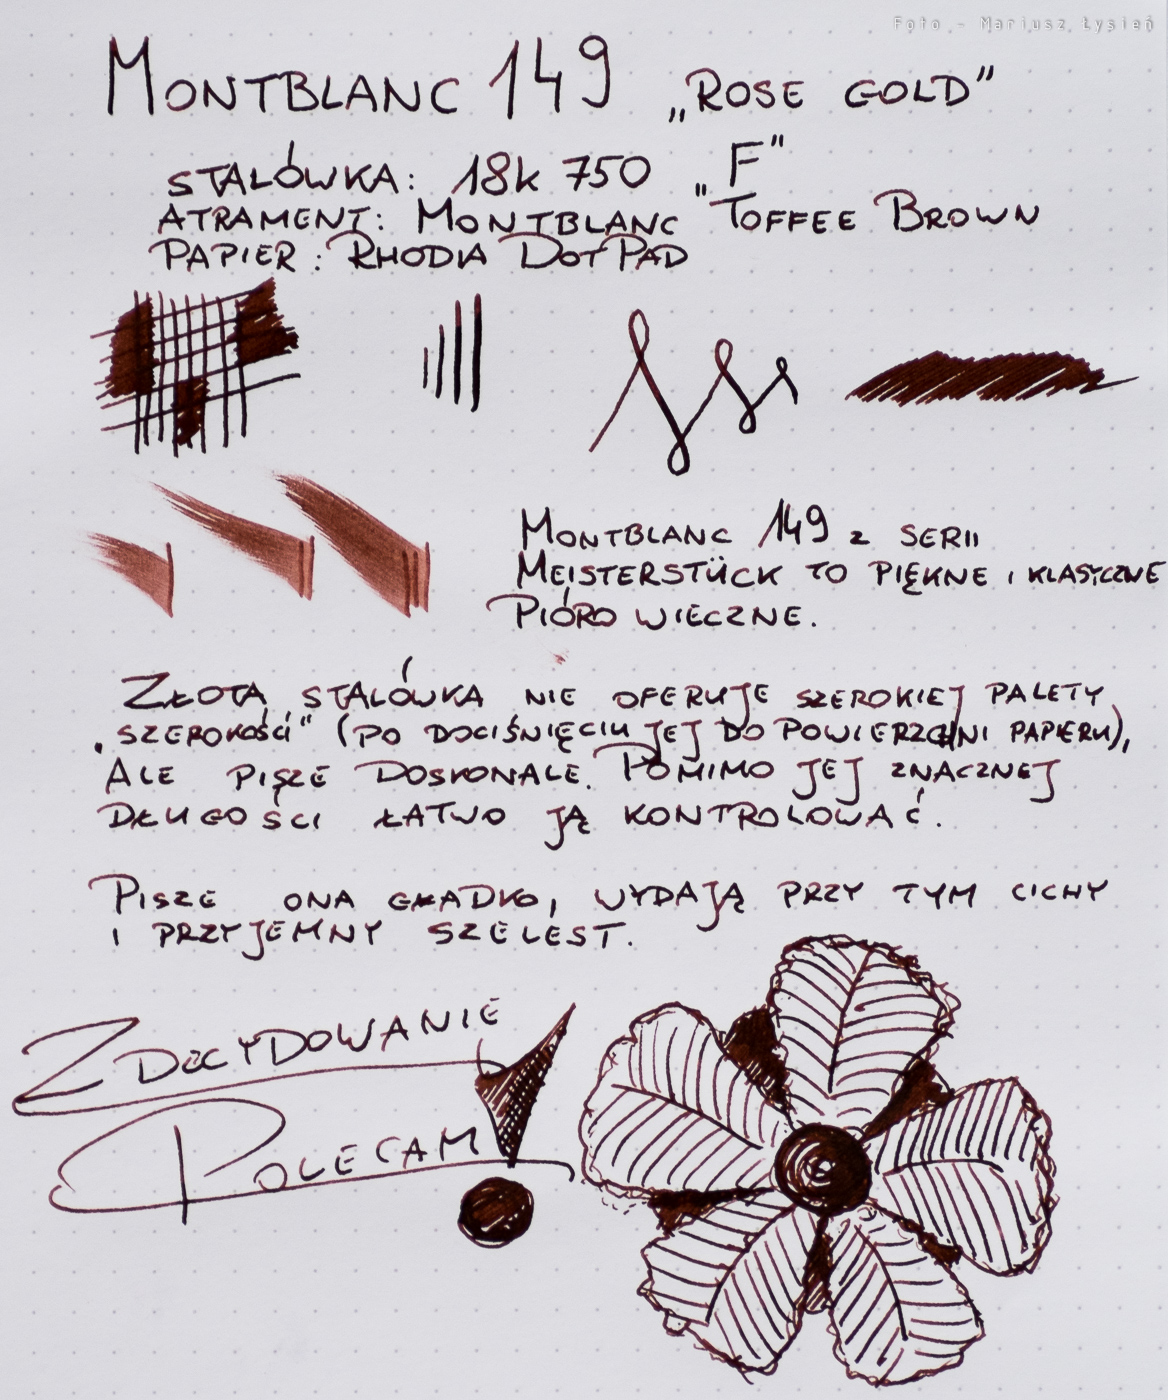 Foto - Mariusz Łysień
MONTBLANC 149 „ROSE GOLD"
STALÓWKA: 18k 750 „F"
ATRAMENT: MONTBLANC "TOFFEE BROWN
PAPIER: RHODIA DOTPAD
MONTBLANC 149 Z SERII
MEISTERSTÜCK TO PIĘKNE I KLASYCZNE
PIÓRO WIECZNE.
ZŁOTA STALÓWKA NIE OFERUJE SZEROKIEJ PALETY
„SZEROKOŚCI" (PO DOCIŚNIĘCIU JEJ DO POWIERZCHNI PAPIERU),
ALE PISZE DOSKONALE. POMIMO JEJ ZNACZNEJ
DŁUGOŚCI ŁATWO JĄ KONTROLOWAĆ.
PISZE ONA GŁADKO, WYDAJĄ PRZY TYM CICHY
I PRZYJEMNY SZELEST.
ZDECYDOWANIE
POLECAM!